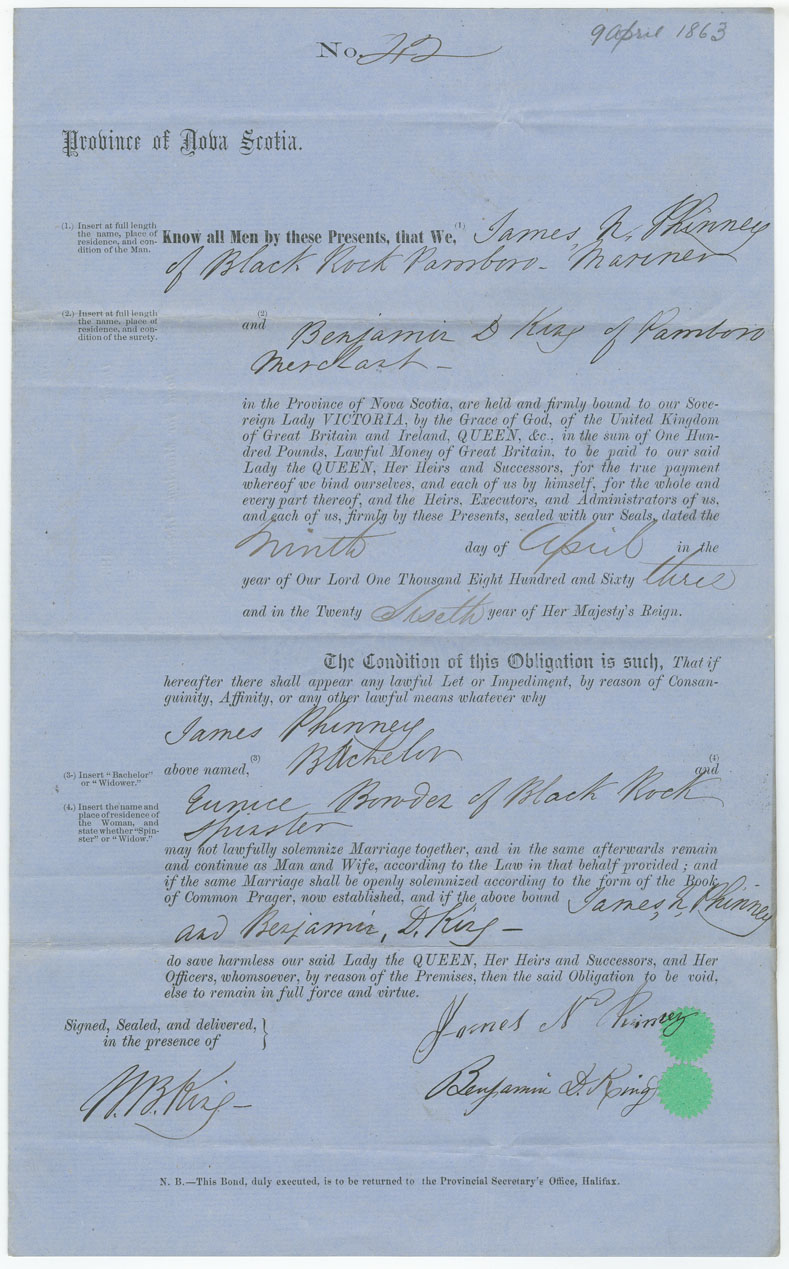 9 April 1863
No. 242
Province of Nova Scotia.
(1.) Insert at full length
the name, place of
residence, and con-
dition of the Man.
Know all Men by these Presents, that We, (1) James N. Phinney
of Black Rock Parrsboro - Mariner
(2.) Insert at full length
the name, place of
residence, and con-
dition of the surety.
(2)
and Benjamin D King of Parrsboro
Merchant -
in the Province of Nova Scotia, are held and firmly bound to our Sove-
reign Lady VICTORIA, by the Grace of God, of the United Kingdom
of Great Britain and Ireland, QUEEN, &c., in the sum of One Hun-
dred Pounds, Lawful Money of Great Britain, to be paid to our said
Lady the QUEEN, Her Heirs and Successors, for the true payment
whereof we bind ourselves, and each of us by himself, for the whole and
every part thereof, and the Heirs, Executors, and Administrators of us,
and each of us, firmly by these Presents, sealed with our Seals, dated the
Ninth day of April in the
year of Our Lord One Thousand Eight Hundred and Sixty three
and in the Twenty year of Her Majesty's Reign.
The Condition of this Obligation is such, That if
hereafter there shall appear any lawful Let or Impediment, by reason of Consan-
guinity, Affinity, or any other lawful means whatever why
James Phinney
(3.) Insert "Bachelor"
or "Widower."
above named, (3) Bachelor (4) and
(4.) Insert the name and
place of residence of
the Woman, and
state whether "Spin-
ster" or "Widow."
Eunice Bowder of Black Rock
Spinster
may not lawfully solemnize Marriage together, and in the same afterwards remain
and continue as Man and Wife, according to the Law in that behalf provided ; and
if the same Marriage shall be openly solemnized according to the form of the Book
of Common Prager, now established, and if the above bound James, N, Phinney
and Benjamin, D. King -
do save harmless our said Lady the QUEEN, Her Heirs and Successors, and Her
Officers, whomsoever, by reason of the Premises, then the said Obligation to be void,
else to remain in full force and virtue.
Signed, Sealed, and delivered,
in the presence of
James N Phinney
Benjamin D. King
W. B. King -
N. B.—This Bond, duly executed, is to be returned to the Provincial Secretary's Office, Halifax.